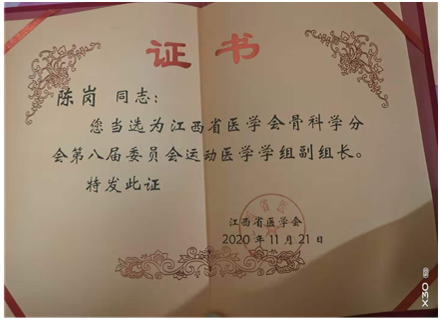 证书
陈岗 同志：
您当选为江西省医学会骨科学分
会第八届委员会运动医学学组副组长。
特发此证
江西省医学会
2020 年 11 月 21 日
X30